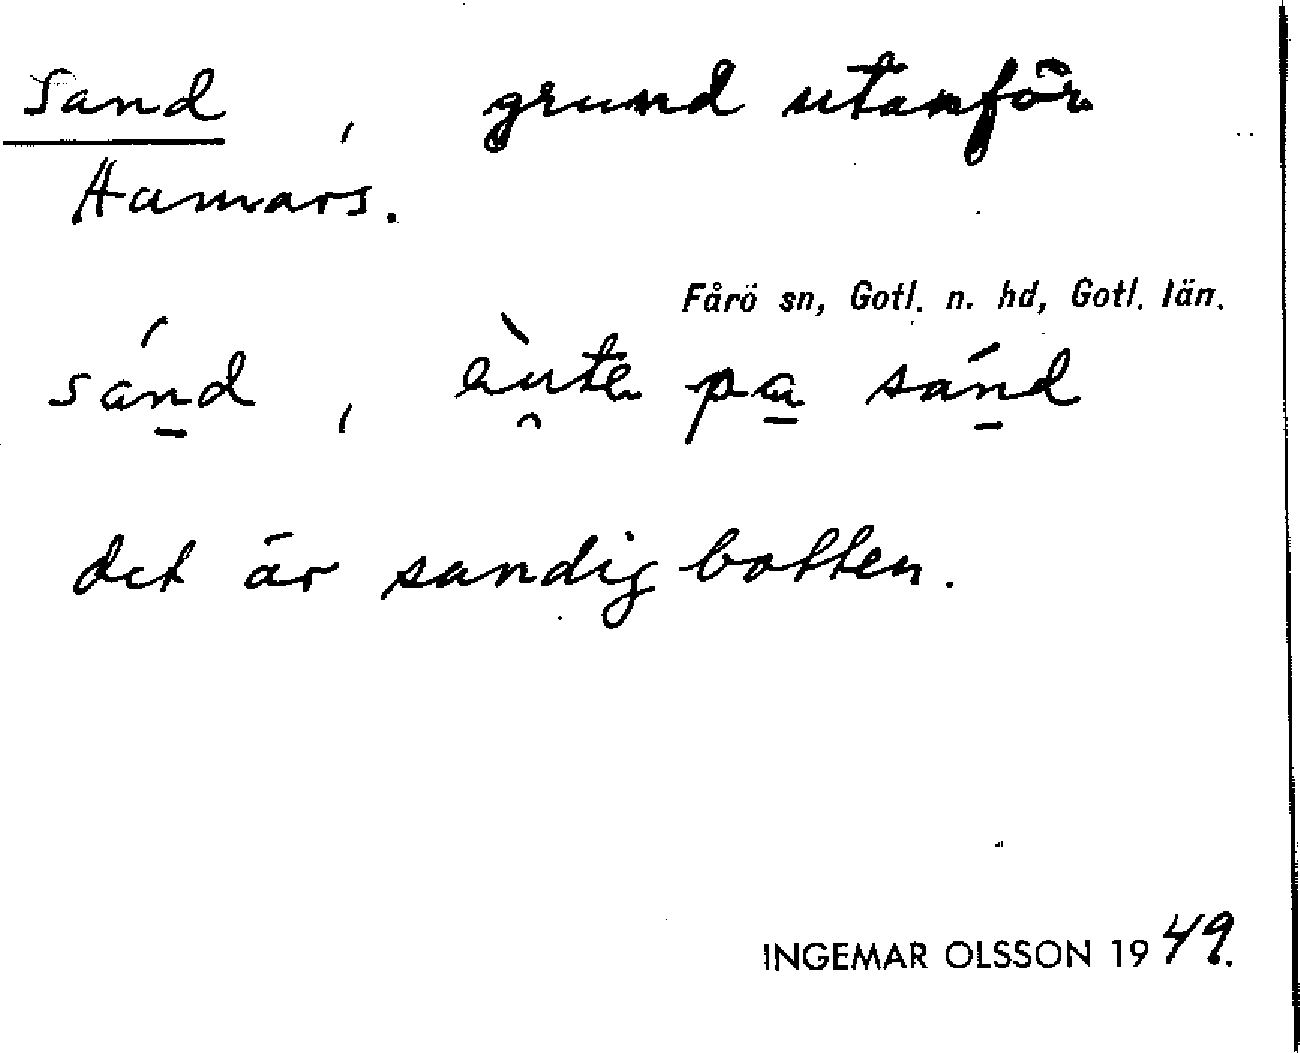 Sand, grund utanför
Hamars.
Fårö sn, Gotl. n. hd, Gotl. län.
sán̲d, èu̯te pa̲ sán̲d
det är sandig botten.
INGEMAR OLSSON 1949.